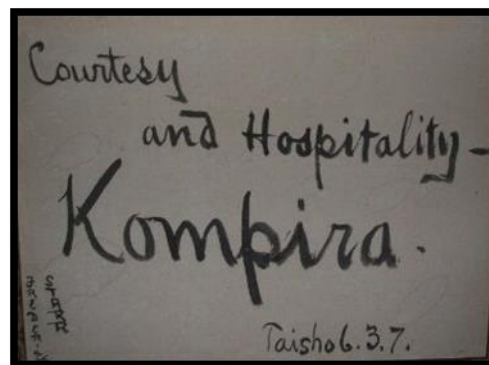 Courtesy
and Hospitality-
Kompira.
Taisho 6.3.7.